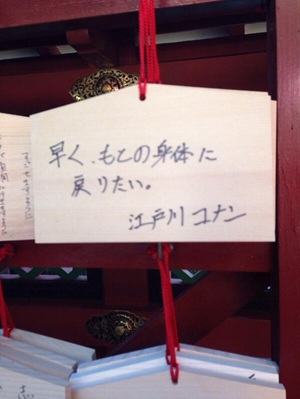 早く、もとの身体に
戻りたい。
江戸川コナン